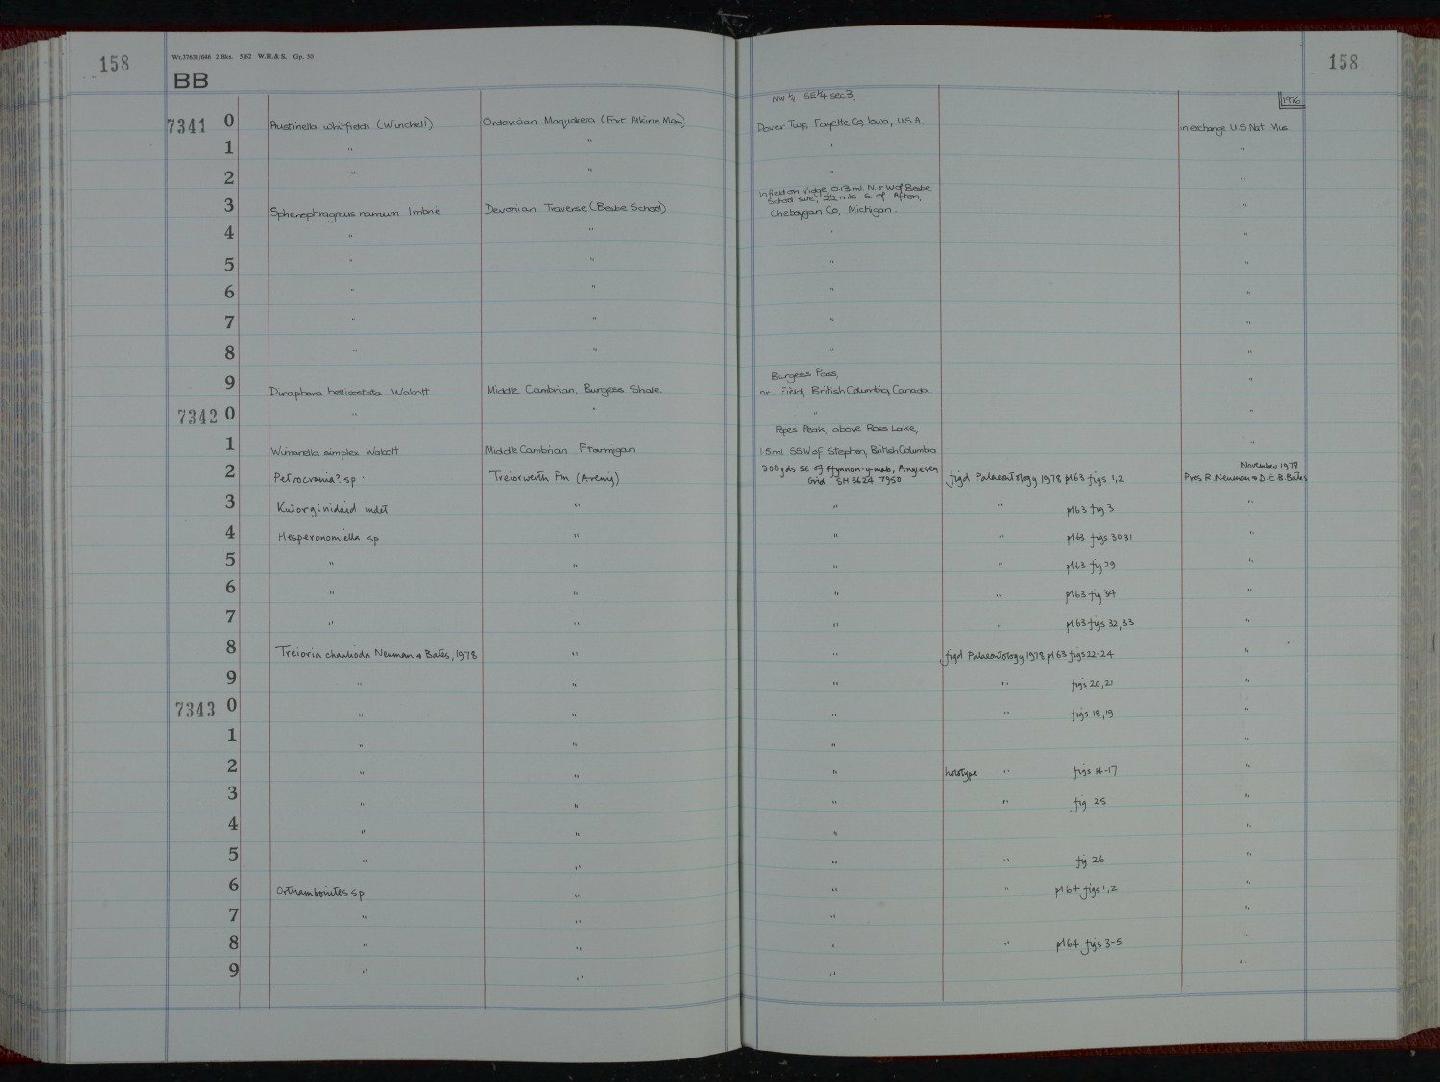 158
Wt.37631/646 2Bks. 5/62 W.R.& S. Gp. 50
158
BB
NW ¼ SE¼ sec 3,
1976
7341 0 Austinella whitfieldi (Winchell) Ordovician Maquokera (Fort Atkine Mem) Dover Twp, Fayette Co, Iowa, U.S.A. in exchange U.S Nat Mus
1 " " " "
2 " " " "
in field on ridge 0.13 ml. N. & W of Beebe
School site, 2½ mls S. of Afton,
3 Sphenophragmus nanum Imbrie Devonian Traverse (Beebe School) Cheboygan Co, Michigan. "
4 " " " "
5 " " " "
6 " " " "
7 " " " "
8 " " " "
Burgess Pass,
9 Diraphora bellicostata Walcott Middle Cambrian, Burgess Shale. nr Field, British Columbia, Canada "
7342 0 " " " "
Popes Peak, above Ross Lake,
1 Wimanella simplex Walcott Middle Cambrian Ptarmigan 1.5ml SSW of Stephen, British Columbia "
November 1978
2 Petrocrania? sp. Treiorwerth Fm (Arenig) 200 yds SE of Ffynnon-y-mab, Anglesey figd Palaeontology 1978 pl63 figs 1,2 Pres R. Neuman & D.E.B. Bates
Grid SH 3624 7950
3 Kutorginidid indet " " " pl63 fig 3 "
4 Hesperonomiella sp " " " pl63 figs 30 31 "
5 " " " " pl63 fig 29 "
6 " " " " pl63 fig 34 "
7 " " " " pl63 figs 32,33 "
8 Treioria chaulioda Neuman & Bates, 1978 " " figd Palaeontology 1978 pl 63 figs 22-24 "
9 " " " " figs 20,21 "
7343 0 " " " " figs 18,19 "
1 " " " "
2 " " " holotype " figs 14-17 "
3 " " " " fig. 25 "
4 " " " "
5 " " " " fig 26 "
6 Orthambonites sp " " " pl 64 figs 1,2 "
7 " " " "
8 " " " " pl64 figs 3-5 "
9 " " " "